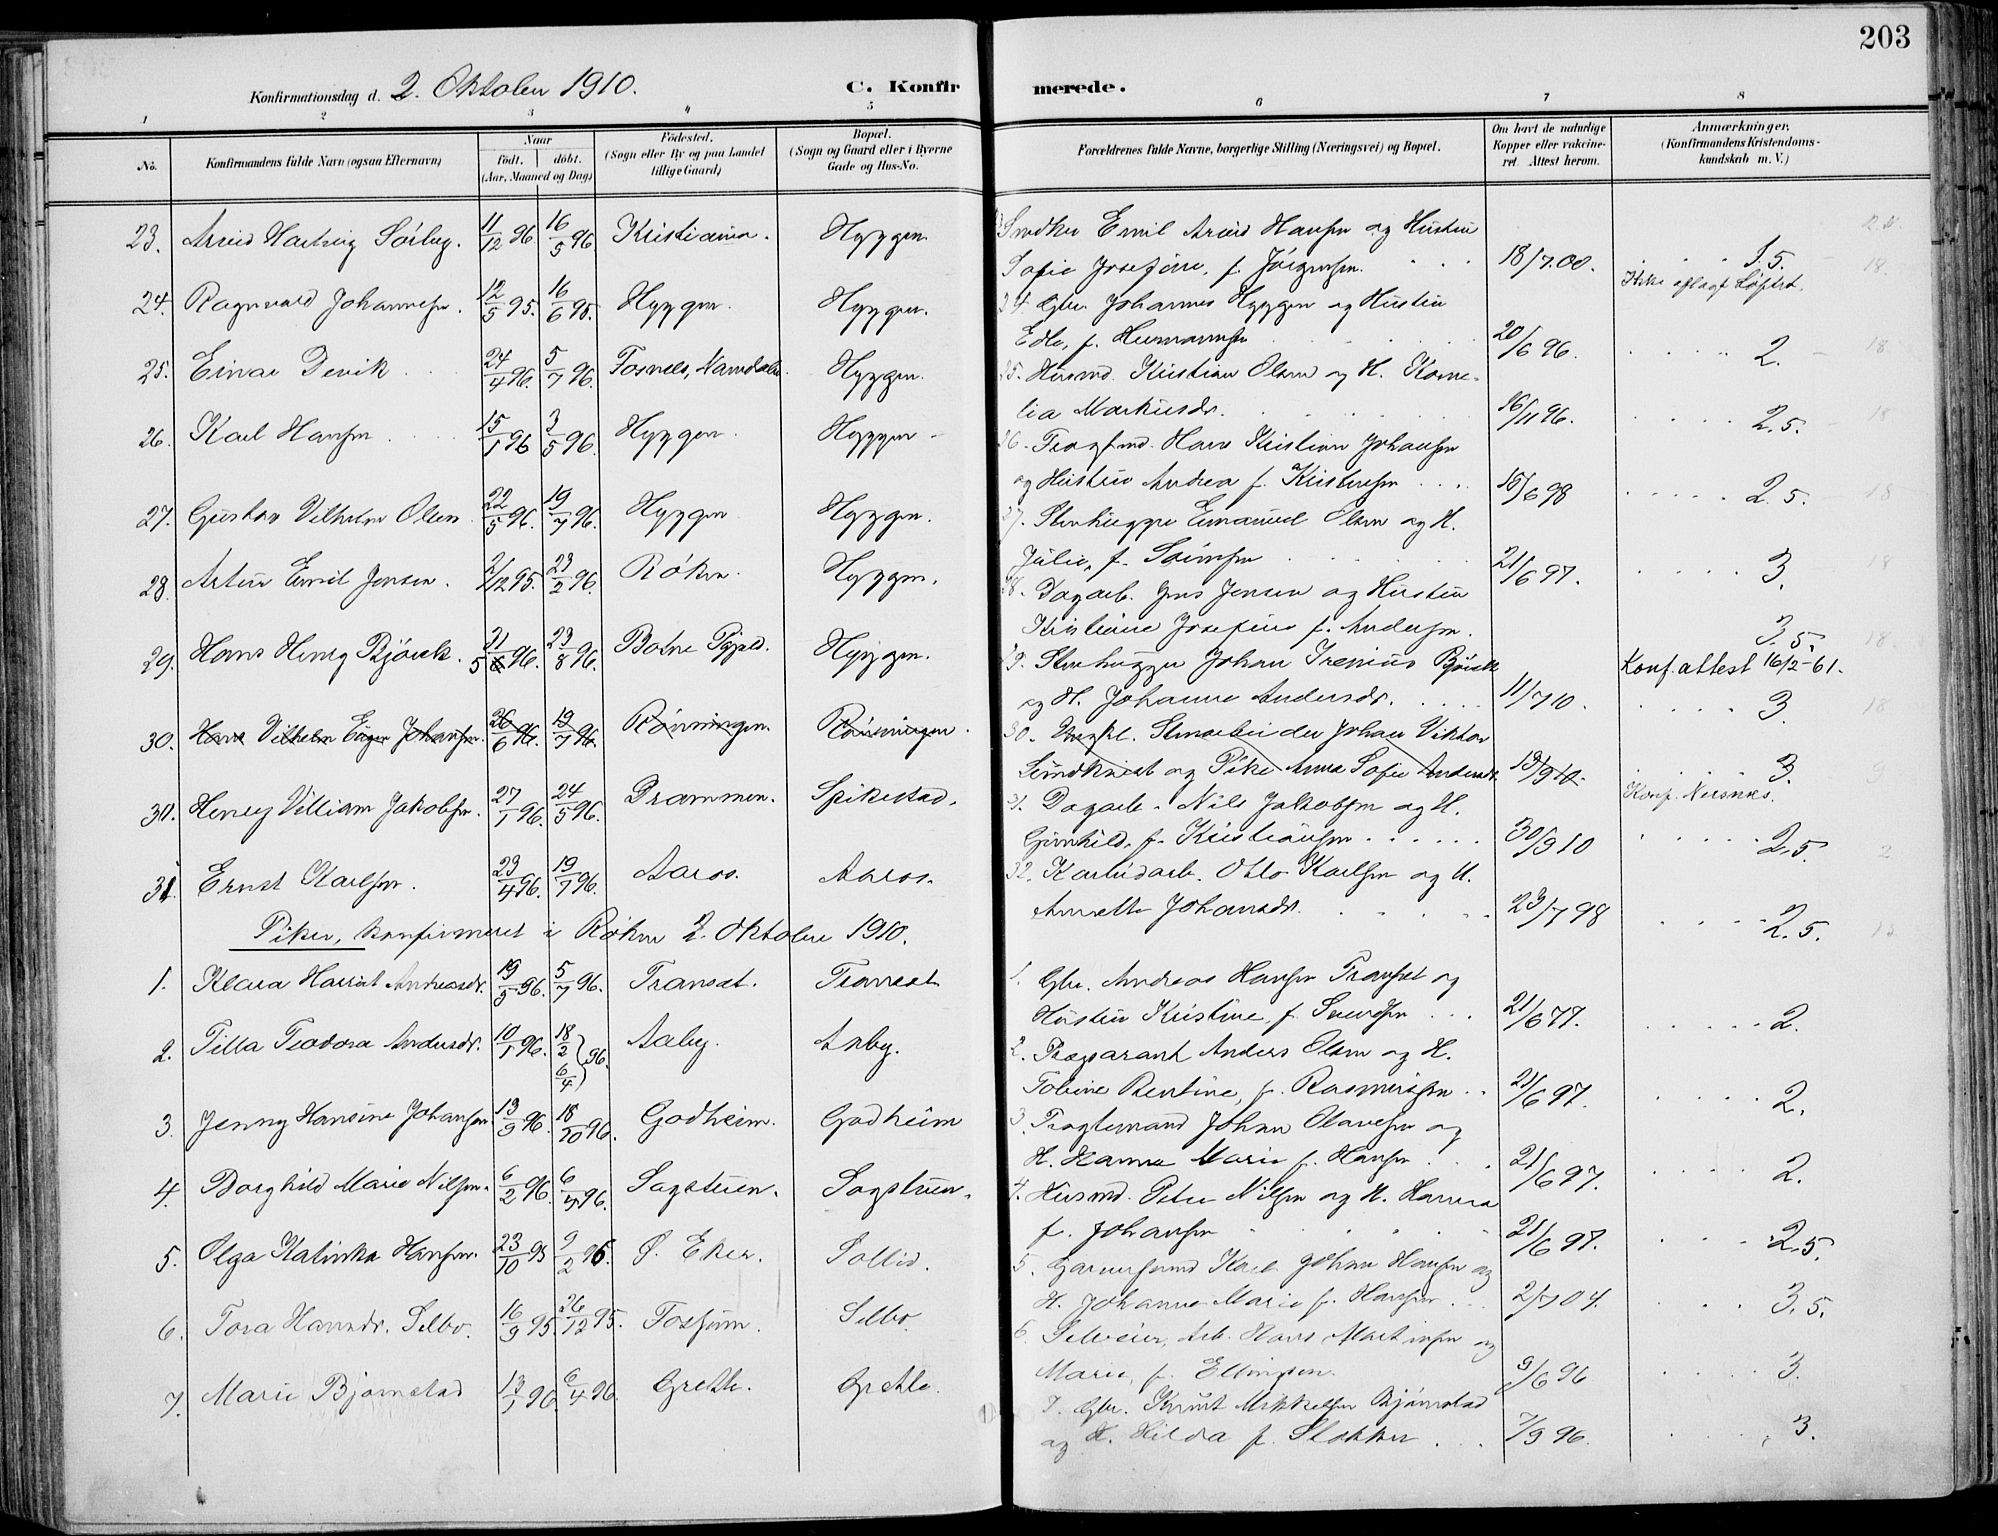 203
Konfirmationsdag d. 2. Oktober 1910.
C. Konfirmerede.
1 2 3 4 5 6 7 8
No.
Konfirmandens fulde Navn (ogsaa Efternavn)
Naar
født. døbt.
(Aar, Maaned og Dag)
Fødested.
(Sogn eller By og paa Landet
tillige Gaard)
Bopæl.
(Sogn og Gaard eller i Byerne
Gade og Hus-No.
Forældrenes fulde Navne, borgerlige Stilling (Næringsvei) og Bopæl.
Om havt de naturlige
Kopper eller vakcine-
ret. Attest herom.
Anmærkninger.
(Konfirmandens Kristendoms-
kundskab m. V.)
23. Arvid Hartvig Sørby. 11/12 96. 16/5 96. Kristiania. Hyggen.
Snedker Emil Arvid Hansen og Hustru
Sofie Josefine, f. Jörgensen. 18/7.00. 3.5.
Ikke aflagt Løftet.
24. Ragnvald Johannesen. 12/5 95. 16/6 95. Hyggen. Hyggen.
24. Gbr. Johannes Hyggen og Hustru
Edle, f. Hermansen 20/6 96. 2.
25. Einar Devik 24/4 96. 5/7 96. Fosnes, Namdalen. Hyggen.
25. Husmd. Kristian Olsen og H. Korne-
lia Markusdr. 16/11 96. 2.5.
26. Karl Hansen 15/1 96 3/5 96. Hyggen. Hyggen
26. Fragtmd. Hans Kristian Johansen
og Hustru Andrea f. Kristensen 15/6 98 2.5.
27. Gustav Vilhelm Olsen 22/5 96. 19/7 96. Hyggen Hyggen.
27. Stenhugger Emanuel Olsen og H.
Julie, f. Simensen 21/6 97. 3.
28. Artur Emil Jensen. 2/12 95. 23/2 96. Røken. Hyggen.
28. Dagarb. Jens Jensen og Hustru
Kristiane Josefine f. Andersen. 3.5.
29. Hans Henry Björck. 21/5 96. 23/8 96. Botne Hyggen.
29. Stenhugger Johan Irenius Björck
og H. Johanne Andersdr. 11/7 10. 3.
Konf. attest 16/2-61.
30. Hans Vilhelm Eugen Johansen. 26/6 96. 19/7 96. Rönningen. Rönningen.
30. Ungkl. Stenarbeider Johan Viktor
Lundkvist og Pike Anna Sofie Andersdr. 19/9 10. 3.
Konf. Nersnes.
30. Henry Villiam Jakobsen. 27/1 96. 24/5 96. Drammen. Spikestad.
31. Dagarb. Nils Jakobsen og H.
Gunhild, f. Kristiansen 30/9 10 2.5.
31. Ernst Karlsen. 23/4 96. 19/7 96. Aaros. Aaros.
32. Otto Karlsen og H.
Annette Johansdr. 23/7 98 2.5.
Piker, konfirmeret i Røken 2. Oktober 1910.
1. Klara Harriet Andreasdr. 19/5 96. 5/7 96. Transet. Transet
1. Gbr. Andreas Hansen Transet og
Hustru Kristine, f. Svendsen 21/6 77. 2.
2. Tilla Teodora Andersdr. 10/1 96. 18/2 6/4 96. Aaby. Aaby.
2. Anders Olsen og H.
Tobine Berntine, f. Rasmussen 21/6 97. 2.
3. Jenny Hansine Johansen 13/9 96. 18/10 96. Godheim. Godheim
3. Fragtemand Johan Olavesen og
H. Hanna Marie f. Hansen 21/6 97. 2.
4. Borghild Marie Nilsen. 6/2 96. 6/4 96. Sagstuen. Sagstuen.
4. Husmd. Peter Nilsen og H. Hanna
f. Johansen 21/6 97. 2.5.
5. Olga Katinka Hansen. 23/10 95 9/2 96. Ø. Eker. Sollid.
5. Karl Johan Hansen og
H. Johanne Marie f. Hansen 2/7 04. 3.5.
6. Tora Hansdr. Selbo. 16/9 95. 26/12 95. Fossum. Selbo.
6. Selveier, Arb. Hans Martinsen og
Marie, f. Ellingsen. 9/6 96 3.
7. Marie Bjørnstad 13/1 96. 6/4 96. Gretle. Gretle.
7. Gbr. Knut Mikkelsen Bjørnstad
og H. Hilda f. Stokker 7/9 96. 3.